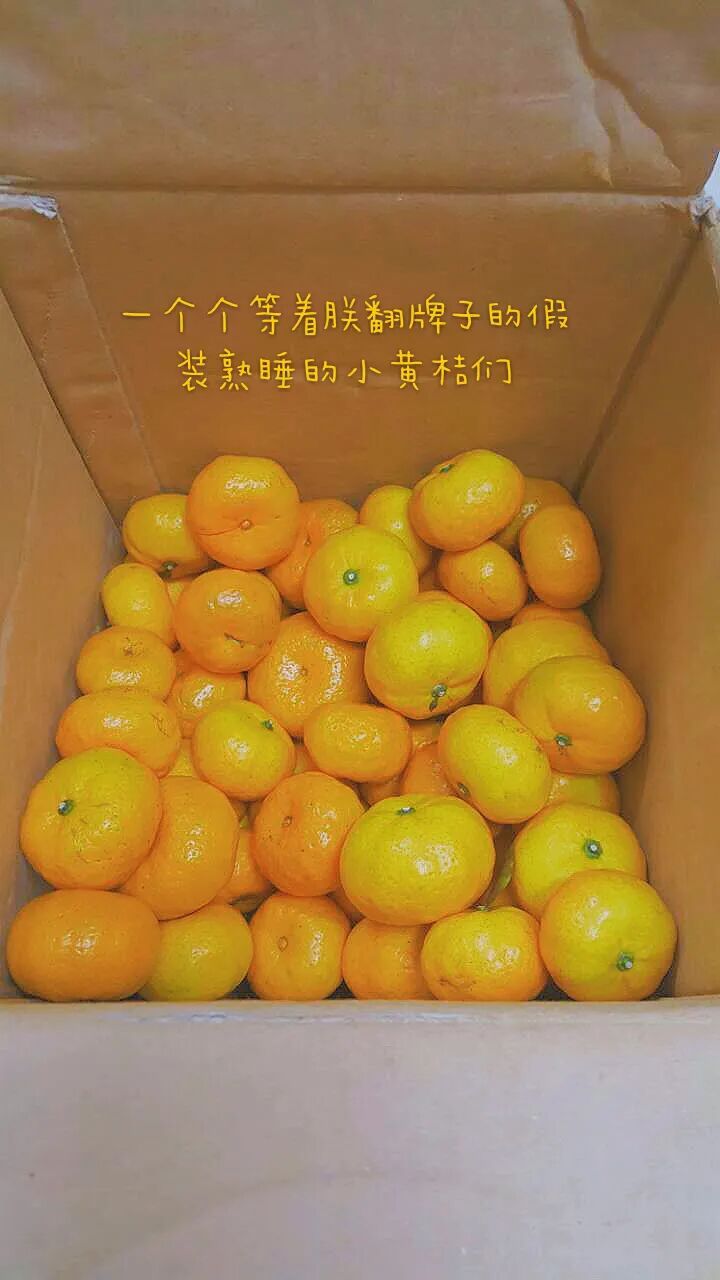 一个个等着朕翻牌子的假
装熟睡的小黄桔们